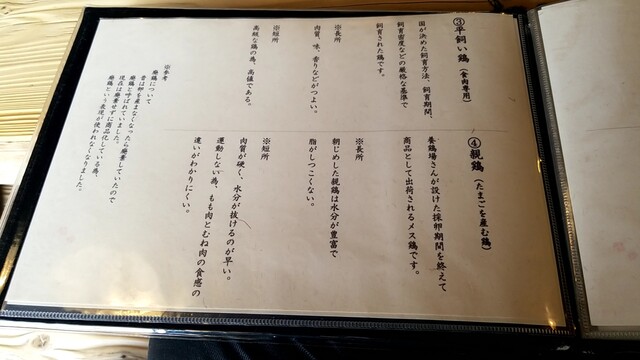 ③平飼い鶏（食肉専用）
国が決めた飼育方法、飼育期間、
飼育密度などの厳格な基準で
飼育された鶏です。
※長所
肉質、味、香りなどがつよい。
※短所
高級な鶏の為、高値である。
※参考
廃鶏について
昔は卵を産まなくなったら廃棄していたので
廃鶏と呼ばれていました。
現在は廃棄せずに商品化している為、
廃鶏という表現が使われなくなりました。
④親鶏（たまごを産む鶏）
養鶏場さんが設けた採卵期間を終えて
商品として出荷されるメス鶏です。
※長所
朝じめした親鶏は水分が豊富で
脂がしつこくない。
※短所
肉質が硬く、水分が抜けるのが早い。
運動しない為、もも肉とむね肉の食感の
違いがわかりにくい。